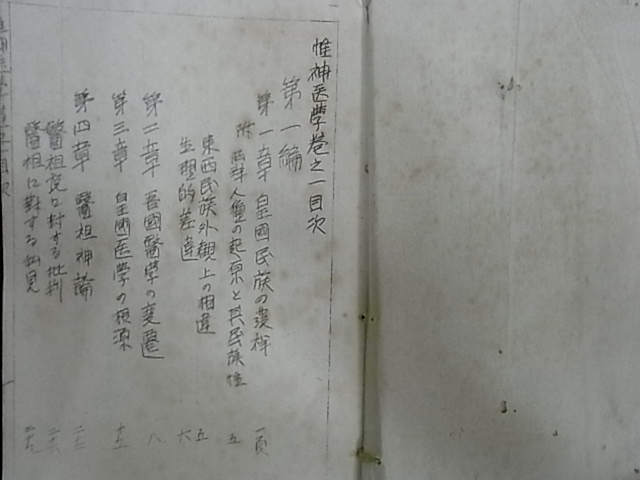 惟神医学巻之一目次
第一編
第一章 皇國民族の發祥 一頁
附 西洋人種の起原と其民族性 五
東西民族外観上の相違 五
生理的差違 六
第二章 吾國醫学の変遷 八
第三章 皇国医学の根源
第四章 醫祖神論
醫祖説に対する批判
醫祖に對する私見